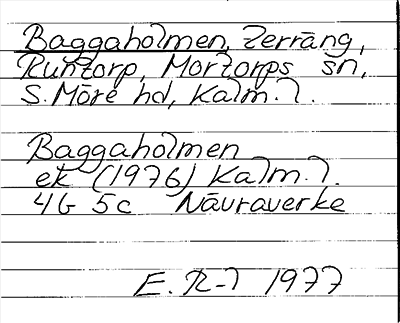 Baggaholmen, terräng,
Runtorp, Mortorps sn,
S. Möre hd, Kalm. l.
Baggaholmen
ek (1976) Kalm. l.
4G 5c Nävraverke
E. R-l 1977